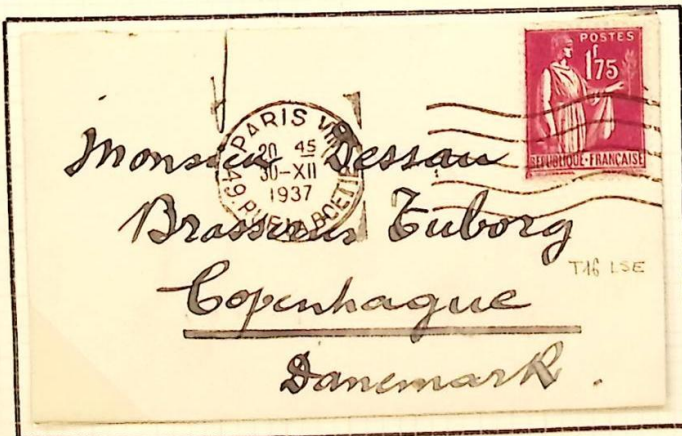 POSTES
1f75
REPUBLIQUE-FRANÇAISE
PARIS VIII
20 45
30-XII
1937
49. R. DE LA BOETIE
Monsieur Dessau
Brasseries Tuborg
T16 LSE
Copenhague
Danemark.